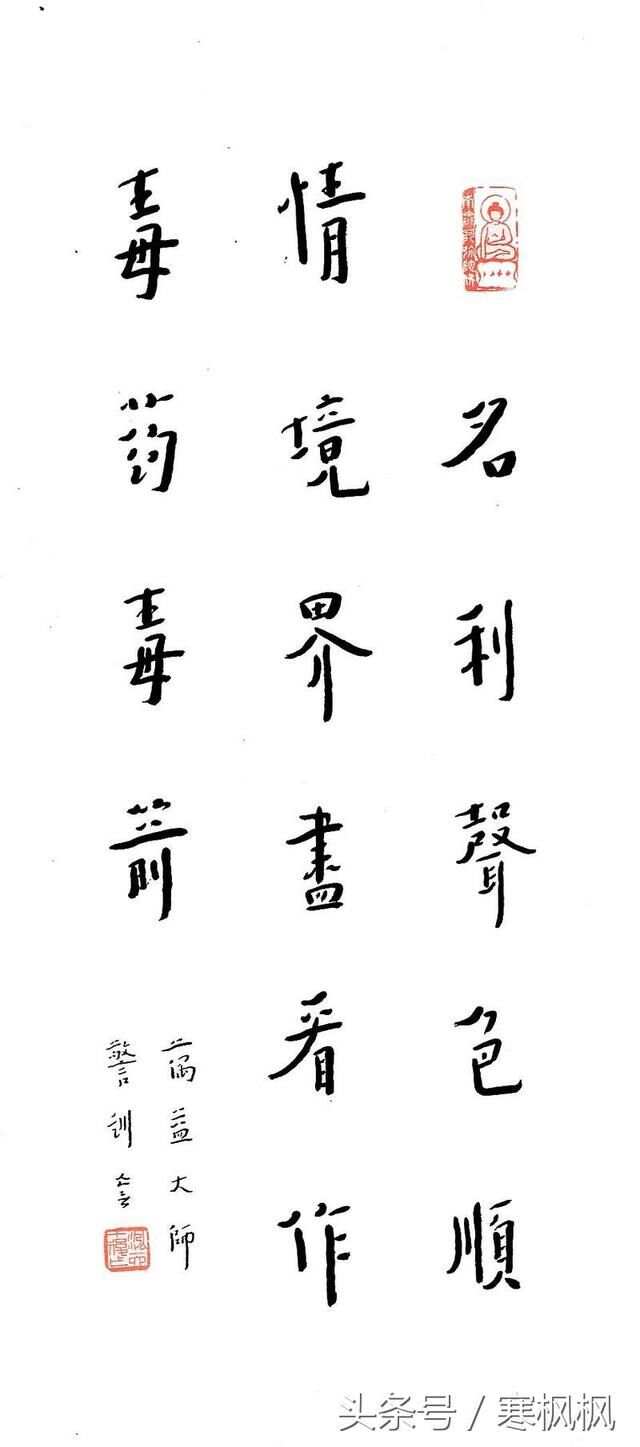 名利聲色順
情境界盡看作
毒葯毒箭
蕅益大師
警訓 音
头条号 / 寒枫枫